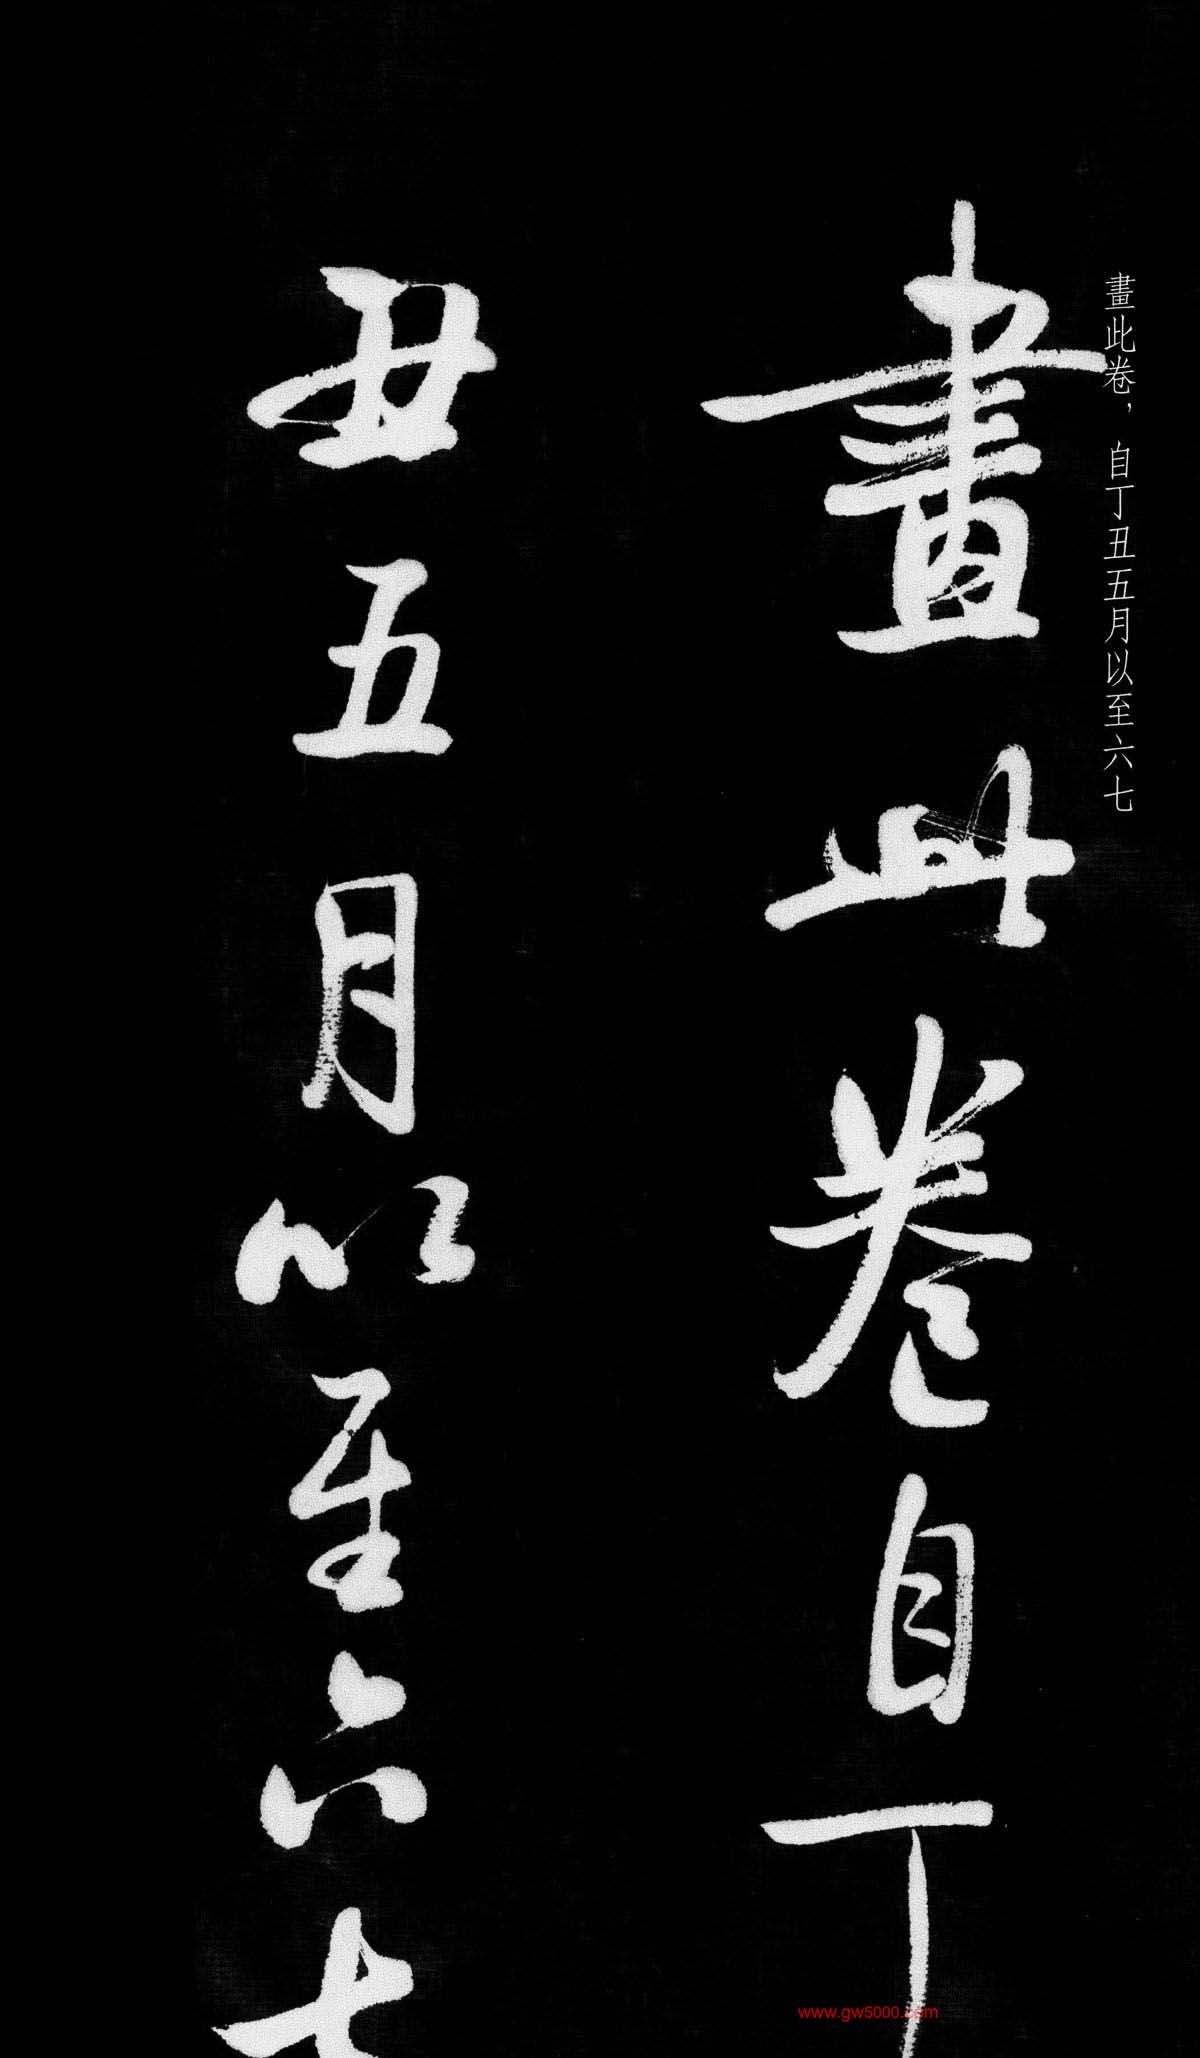 畫此卷，自丁丑五月以至六七
畫此卷自丁
丑五月以至六七
www.gw5000.com